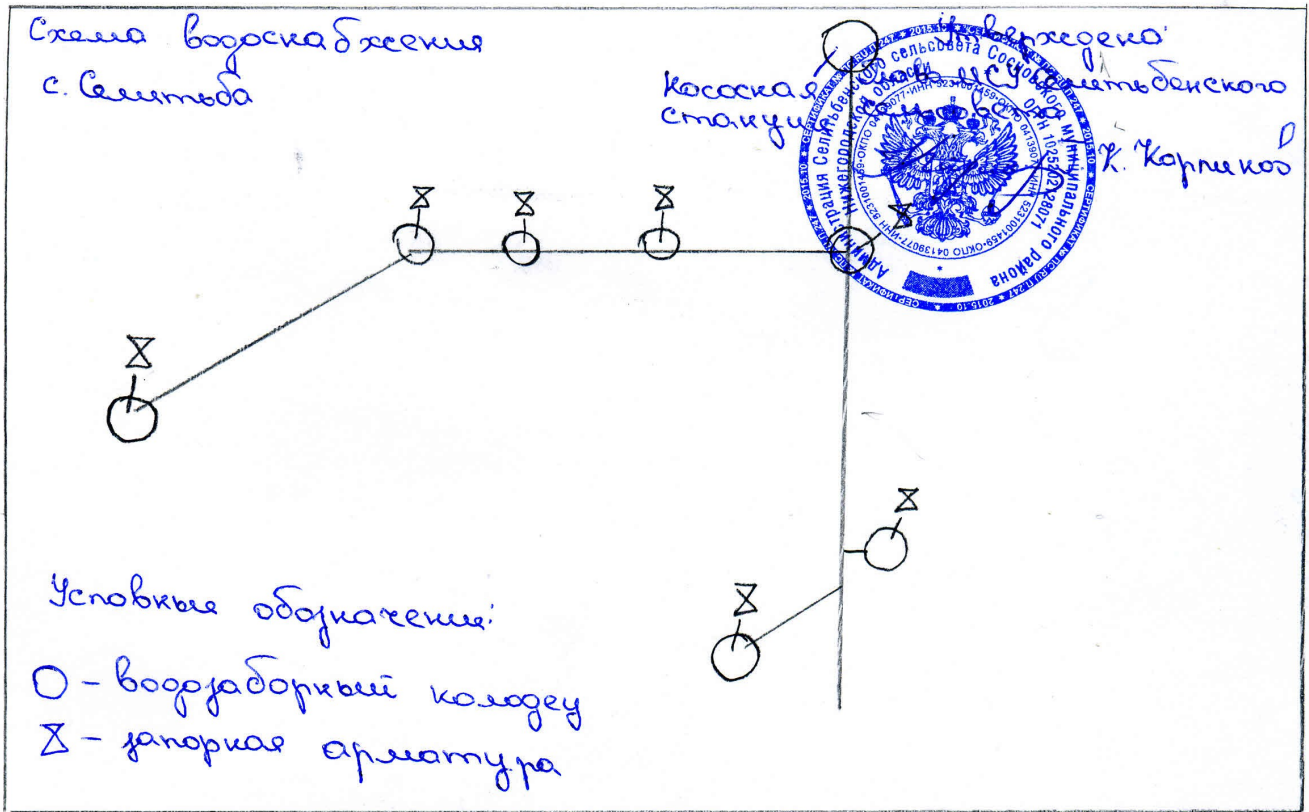 Схема водоснабжения
с. Селитьба
Утверждена:
Насосная
станция
МСУ Селитьбенского
сельсовета
К. Карпиков
Администрация Селитьбенского сельсовета Сосновского муниципального района
Нижегородской области
ОГРН 1025202128071
ИНН 5231001459 ОКПО 04139077
СЕРТИФИКАТ № ПС.RU.П.247 ★ 2015.10
Условные обозначения:
– водозаборный колодец
– запорная арматура